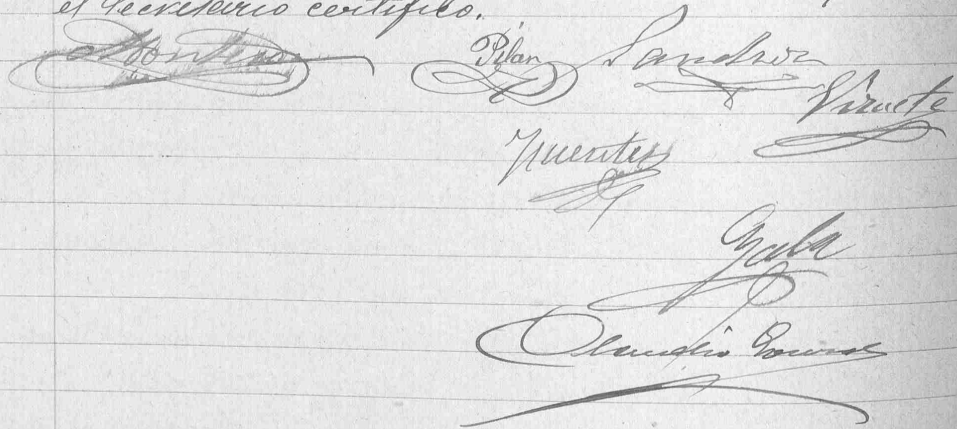 el Secretario certifico.
Montero Pilar Sandro
Viruete
Fuentes
Gala
Claudio